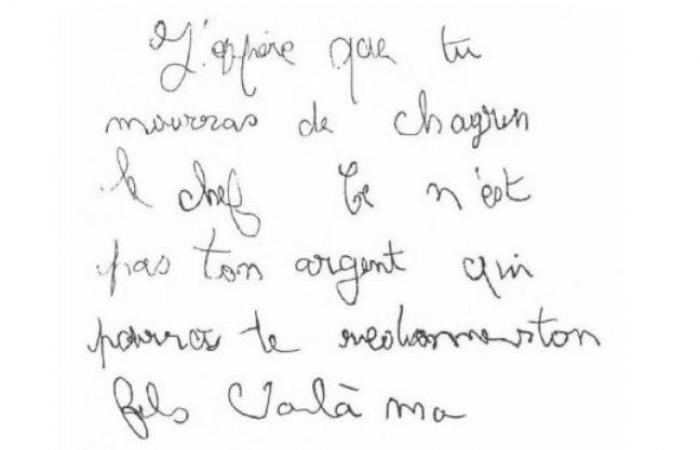 J'espère que tu
mourras de chagrin
le chef Ce n'est
pas ton argent qui
pourra te redonner ton
fils Voilà ma